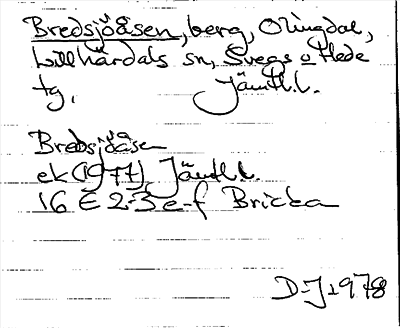 Bredsjöåsen, berg, Olingdal,
Lillhärdals sn, Svegs o Hede
tg, Jämtl.l.
Bredsjöåsen
ek (1977), Jämtl.l.
16 E 2-3 e-f Bricka
D-J 1978